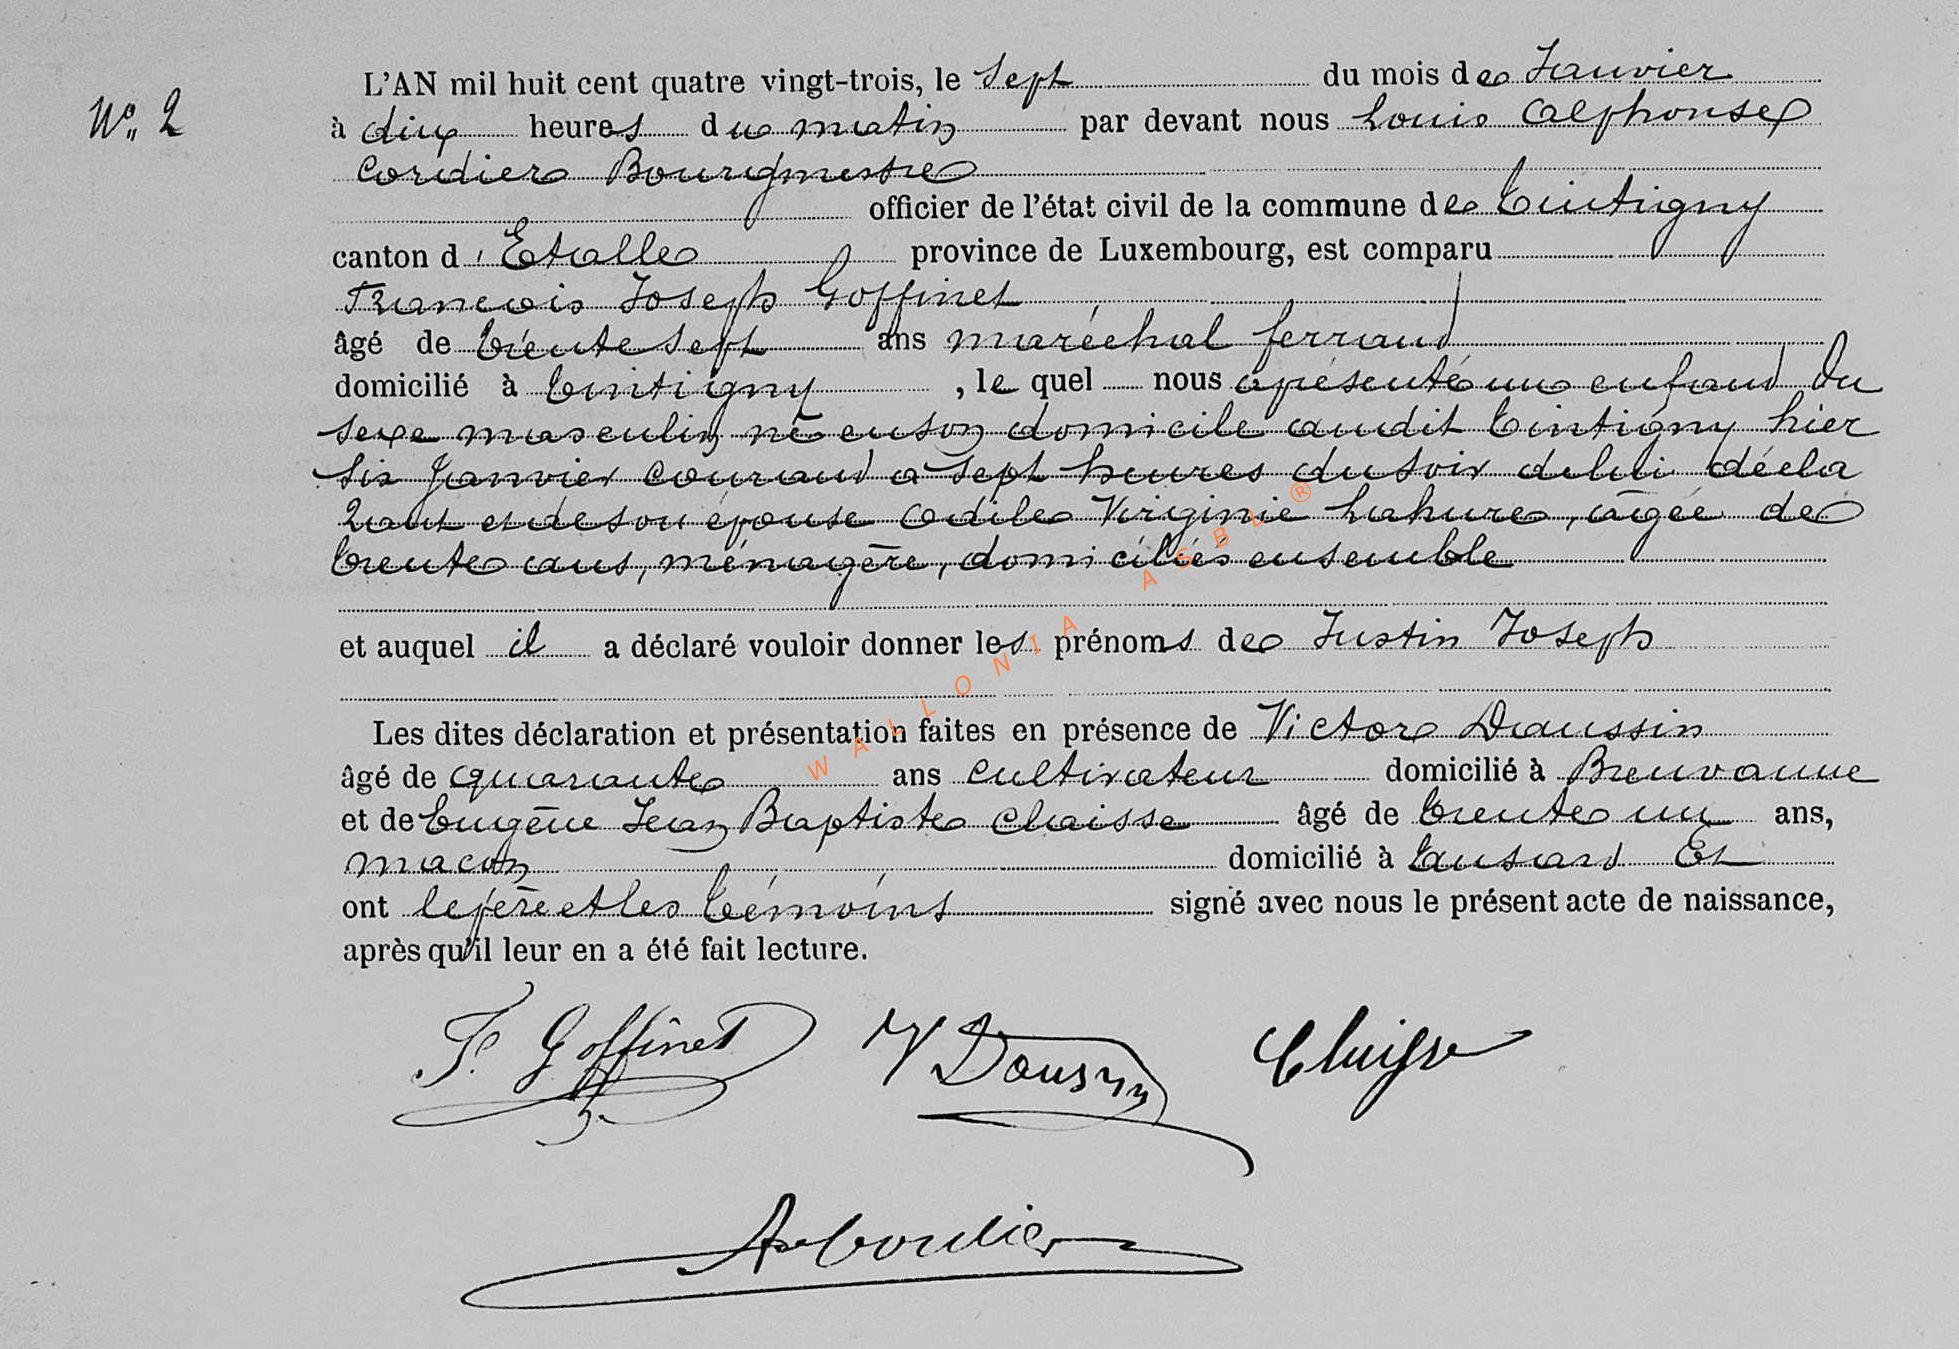 N° 2
L'AN mil huit cent quatre vingt-trois, le sept du mois de Janvier
à dix heures du matin par devant nous Louis Alphonse
Cordier Bourgmestre
officier de l'état civil de la commune de Tintigny
canton d'Etalle province de Luxembourg, est comparu
Francois Joseph Goffinet
âgé de trente sept ans maréchal ferrand
domicilié à Tintigny, le quel nous a présenté un enfand du
sexe masculin né en son domicile audit Tintigny hier
six Janvier courand a sept heures du soir de lui décla
rant et de son épouse Odile Virginie Lahure, âgée de
trente ans, ménagère, domiciliés ensemble
et auquel il a déclaré vouloir donner les prénoms de Justin Joseph
Les dites déclaration et présentation faites en présence de Victor Daussin
âgé de quarante ans cultivateur domicilié à Breuvanne
et de Eugène Jean Baptiste Claisse âgé de trente un ans,
macon domicilié à Ansard Et
ont le père et les témoins signé avec nous le présent acte de naissance,
après qu'il leur en a été fait lecture.
F. Goffinet V Dausin Claisse
A Cordier
WALLONIA ASBL ®